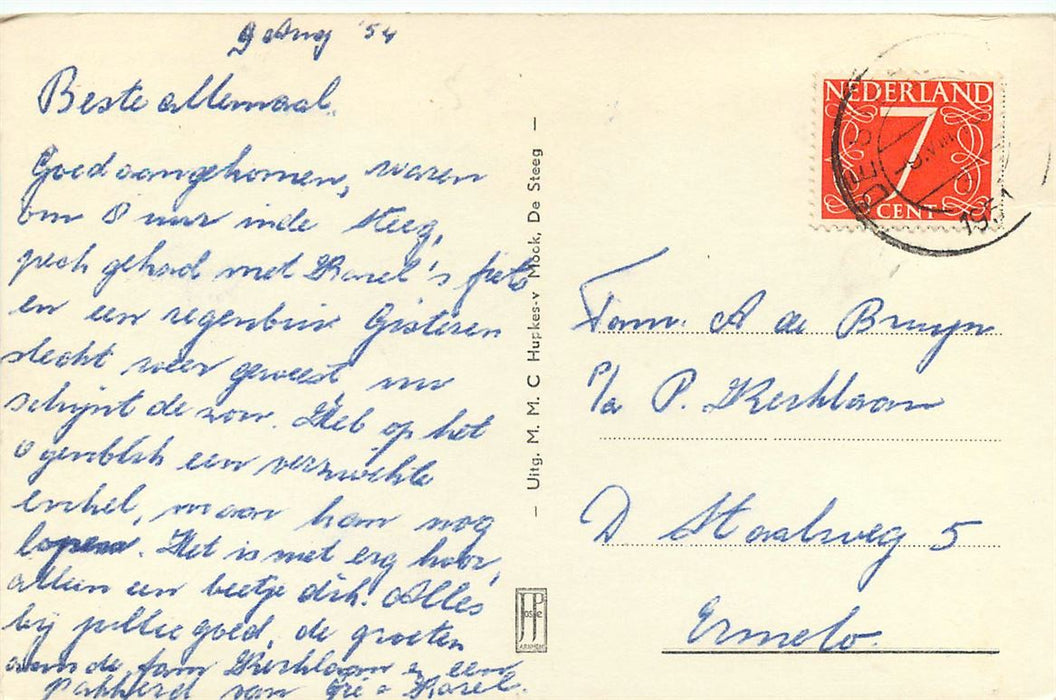 9 Aug '54
Beste allemaal.
Goed aangekomen, waren
om 8 uur in de Steeg,
pech gehad met Karel's fiets
en een regenbui. Gisteren
slecht weer geweest nu
schijnt de zon. Heb op het
ogenblik een verzwikte
enkel, maar kan nog
lopen. Het is niet erg hoor,
alleen een beetje dik. Alles
bij jullie goed, de groeten
aan de fam Kerklaan en een
pakkerd van Karel
- Uitg. M. M. C Hupkes-v Mook, De Steeg -
JosPé
ARNHEM
NEDERLAND
7
CENT
DE STEEG
9.VIII
195
Fam. A de Bruyn
p/a P. Kerklaan
D Staalweg 5
Ermelo.